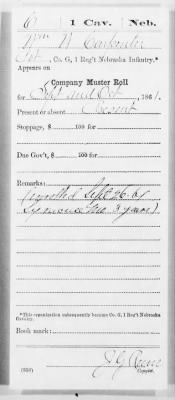 C | 1 Cav. | Neb.
Wm W Carpenter
Pvt., Co. G, 1 Reg't Nebraska Infantry.*
Appears on
Company Muster Roll
for Sept and Oct, 1861.
Present or absent Present
Stoppage, $ 100 for
Due Gov't, $ 100 for
Remarks:
Enrolled Sept 26. 61
Syracuse 3 years.
*This organization subsequently became Co. G, 1 Reg't Nebraska
Cavalry.
Book mark:
(358)
Copyist.